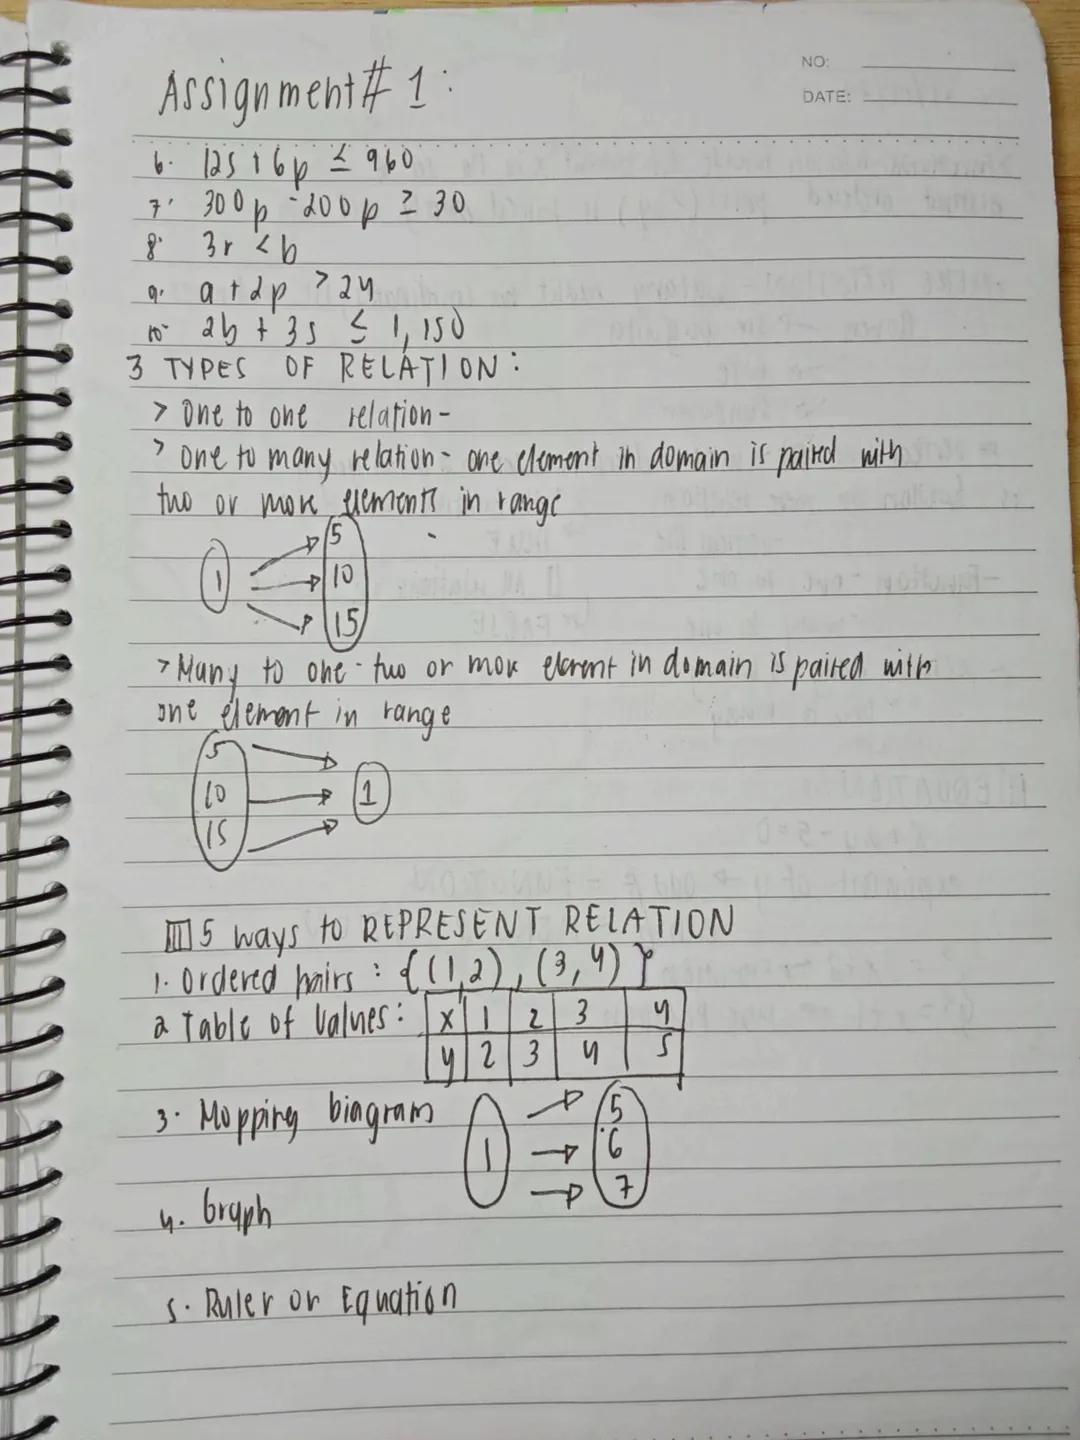 Assignment # 1:
NO:
DATE:
6. 12s + 6p ≤ 960
7. 300p - 200p ≥ 30
8. 3r < b
9. a + 2p > 24
10. 2b + 3s ≤ 1,150
3 TYPES OF RELATION:
> One to one relation -
> One to many relation - one element in domain is paired with
two or more elements in range
1
5
10
15
> Many to one - two or more element in domain is paired with
one element in range
5
10
15
1
III 5 ways to REPRESENT RELATION
1. Ordered pairs : {(1,2), (3,4)}
2 Table of Values: x 1 2 3 4
y 2 3 4 5
3. Mopping biagram
1
5
6
7
4. Graph
5. Ruler or Equation